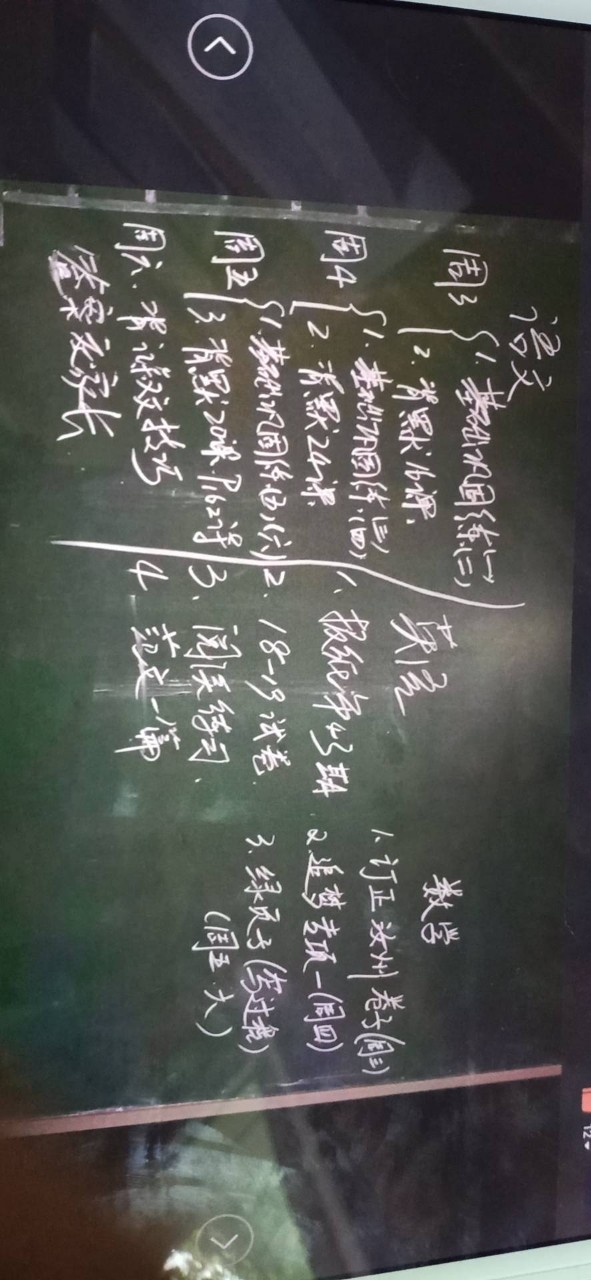 语文
周3 1. 基础巩固练(一)(二)
2. 背默16课.
周4 1. 基础巩固练(三)(四)
2. 背默24课.
周五 1. 基础巩固练(五)(六)
3. 背默20课 P162
周六、背议论文技巧
答案交家长
英语
1、报纸第43期
2. 18-19试卷.
3、阅读练习、
4 范文一篇
数学
1. 订正汝州卷子(周三)
2. 追梦专项一(周四)
3. 绿皮子(写过程)
(周五.六)